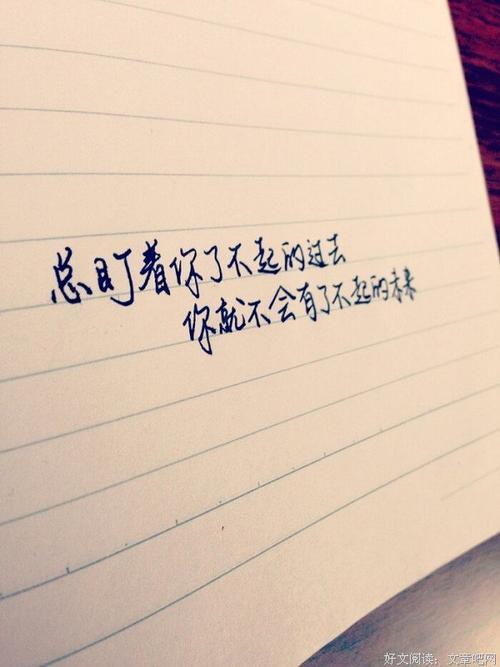 总盯着你了不起的过去
你就不会有了不起的未来
好文阅读：文章吧网